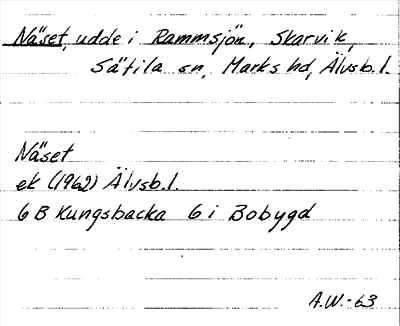 Näset, udde i Rammsjön, Skarvik,
Sätila sn, Marks hd, Älvsb.l.
Näset
ek (1962) Älvsb.l.
6 B Kungsbacka 6 i Bobygd
A.W.-63